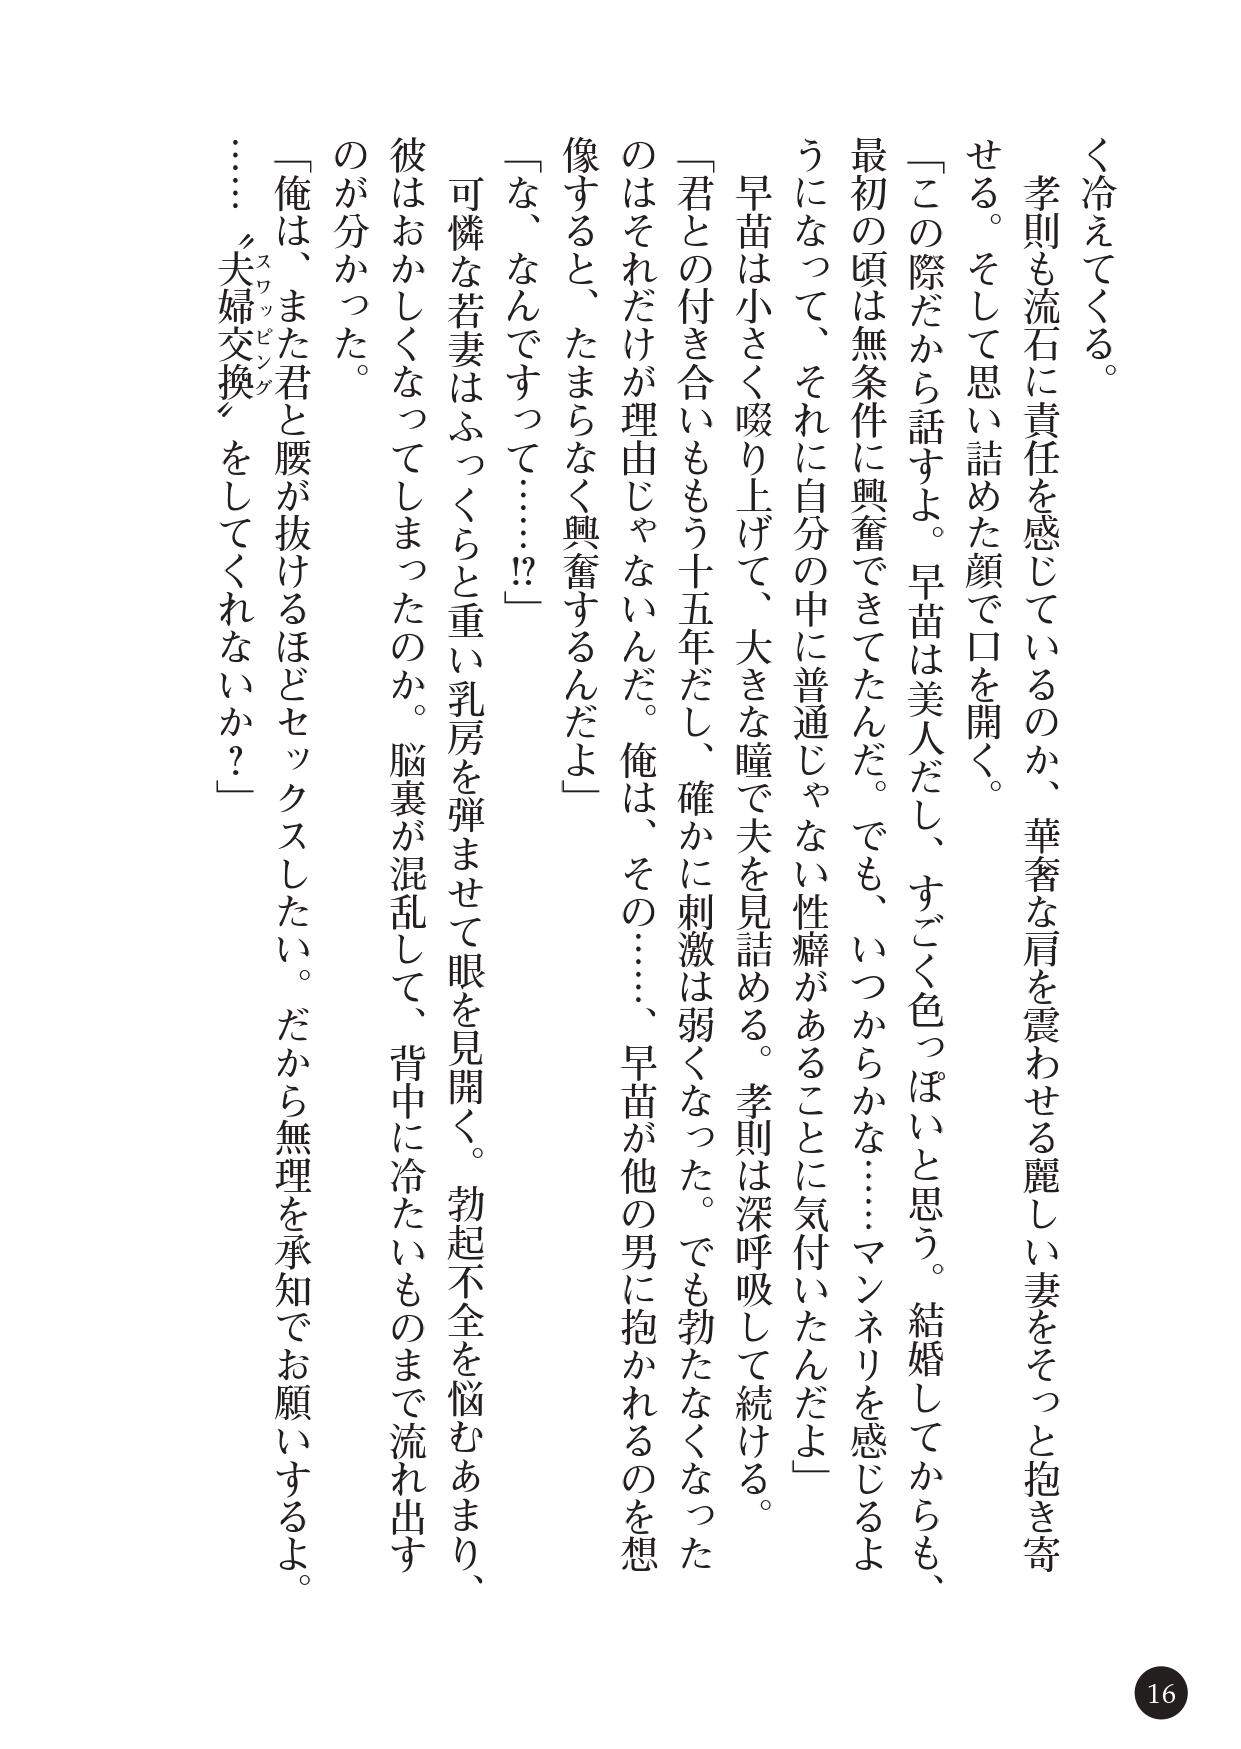 く冷えてくる。
　孝則も流石に責任を感じているのか、華奢な肩を震わせる麗しい妻をそっと抱き寄
せる。そして思い詰めた顔で口を開く。
「この際だから話すよ。早苗は美人だし、すごく色っぽいと思う。結婚してからも、
最初の頃は無条件に興奮できてたんだ。でも、いつからかな……マンネリを感じるよ
うになって、それに自分の中に普通じゃない性癖があることに気付いたんだよ」
　早苗は小さく啜り上げて、大きな瞳で夫を見詰める。孝則は深呼吸して続ける。
「君との付き合いももう十五年だし、確かに刺激は弱くなった。でも勃たなくなった
のはそれだけが理由じゃないんだ。俺は、その……、早苗が他の男に抱かれるのを想
像すると、たまらなく興奮するんだよ」
「な、なんですって……!?」
　可憐な若妻はふっくらと重い乳房を弾ませて眼を見開く。勃起不全を悩むあまり、
彼はおかしくなってしまったのか。脳裏が混乱して、背中に冷たいものまで流れ出す
のが分かった。
「俺は、また君と腰が抜けるほどセックスしたい。だから無理を承知でお願いするよ。
スワッピング
……〝夫婦交換〟をしてくれないか？」
16